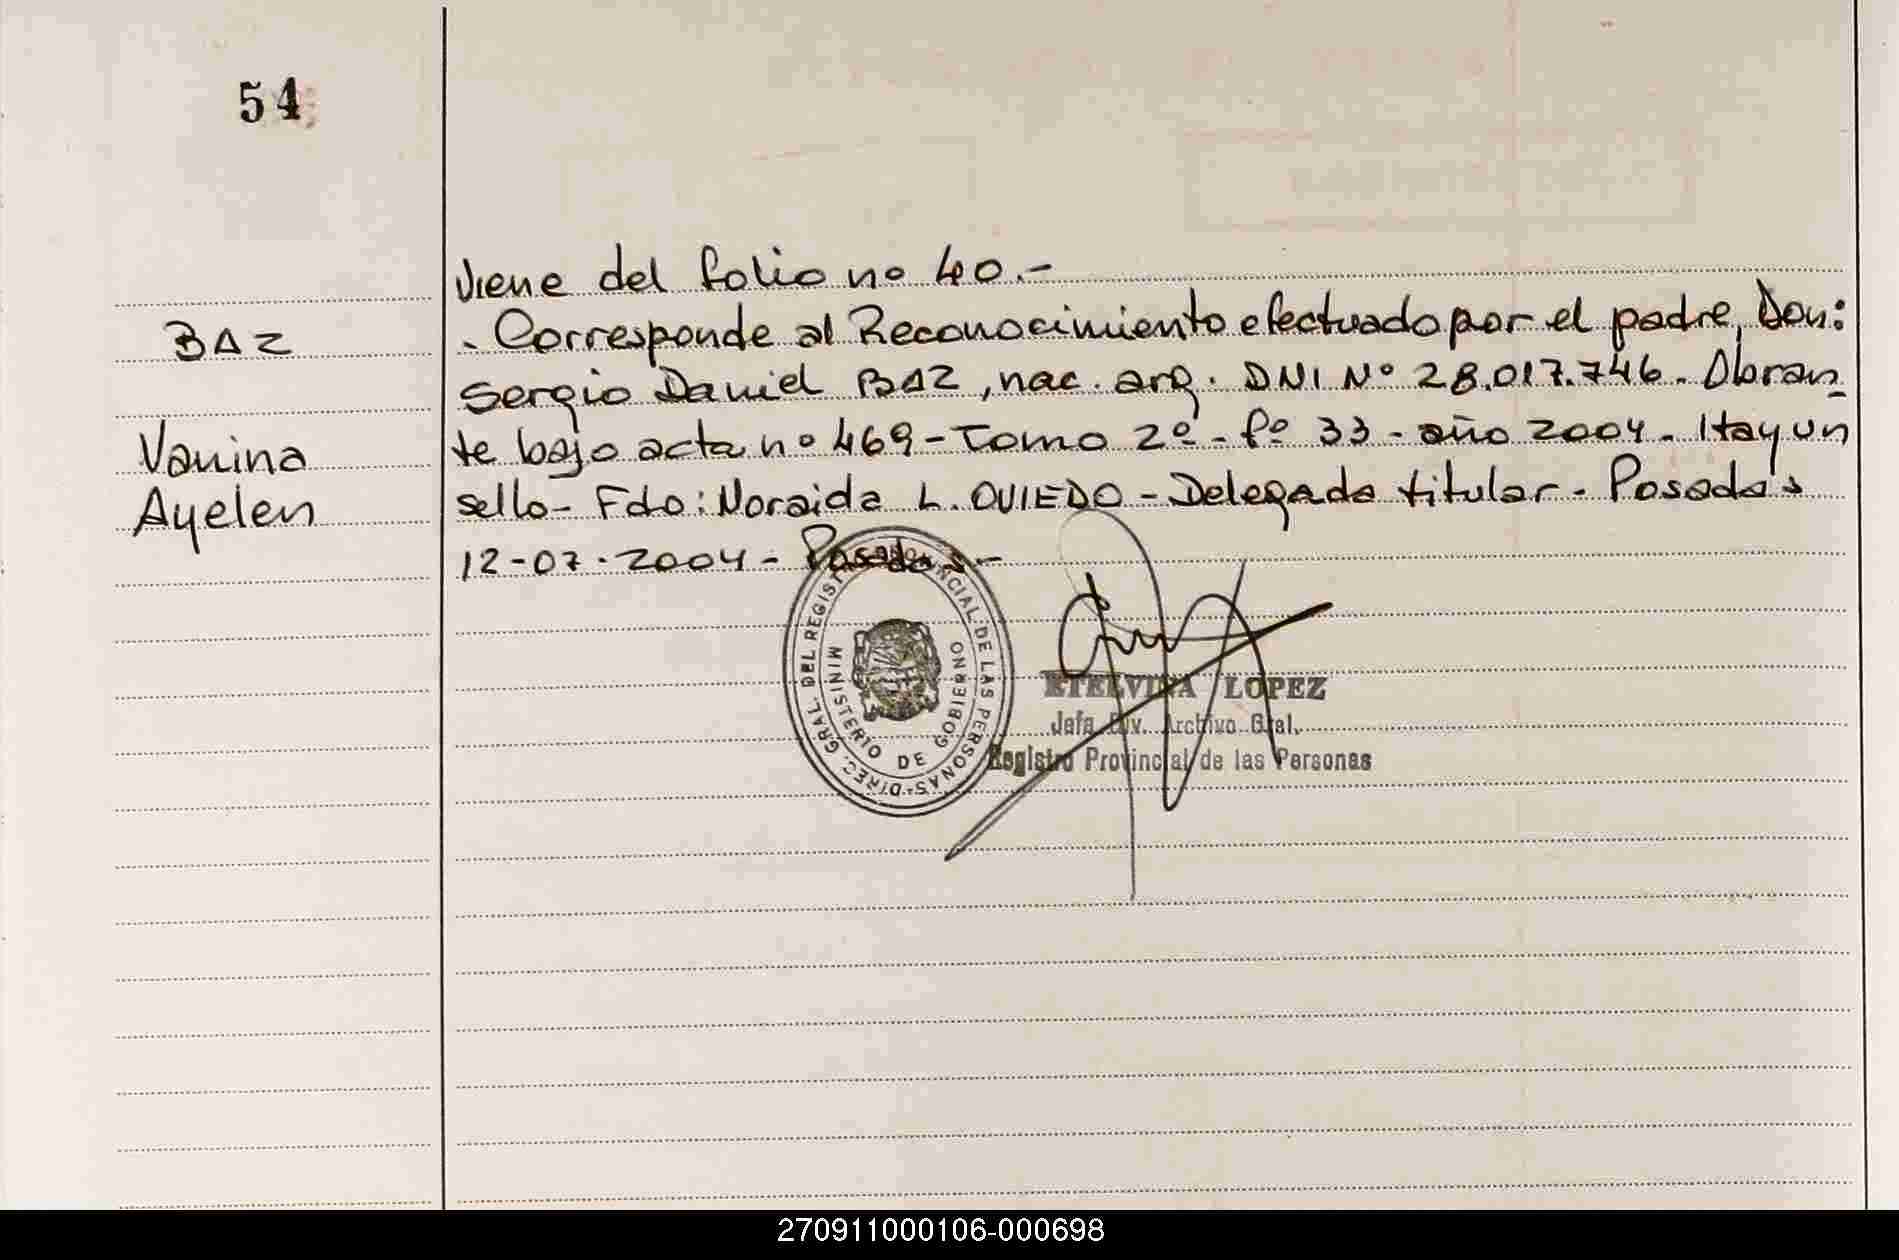 54
BAZ
Vanina
Ayelen
Viene del folio nº 40.-
. Corresponde al Reconocimiento efectuado por el padre, Don:
Sergio Daniel BAZ, nac. arg. DNI Nº 28.017.746. Obran_
te bajo acta nº 469 - Tomo 2º - fº 33 - año 2004. Hay un
sello - Fdo: Noraida L. OVIEDO - Delegada titular - Posadas
12-07-2004 - Posadas.-
DIREC. GRAL. DEL REGIST NCIAL DE LAS PERSONAS
MINISTERIO DE GOBIERNO
ETELVINA LOPEZ
Jefa Div. Archivo Gral.
Registro Provincial de las Personas
270911000106-000698